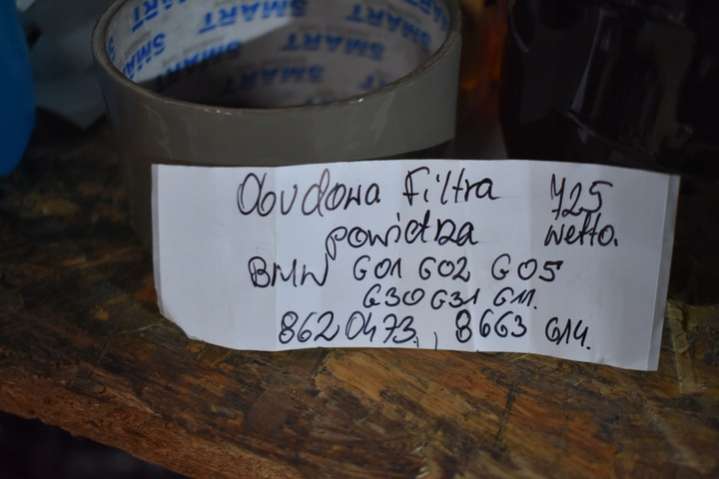 SMART SMART SMART SMART
SMART SMART SMART
Obudowa Filtra 725
powidza netto.
BMW G01 G02 G05
G30 G31 G11.
8620473, 8663 614.